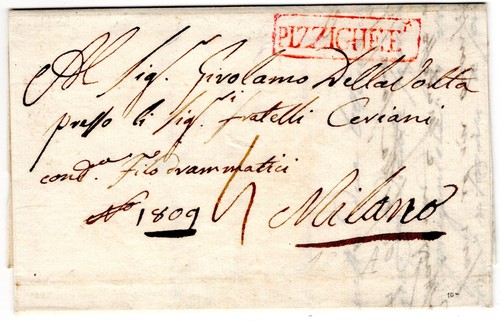 PIZZIGHE.E
Al Sig.r Girolamo Della Volta
presso li Sig.i fratelli Ceriani
cond.a Filodrammatici
N.o 1809
Milano